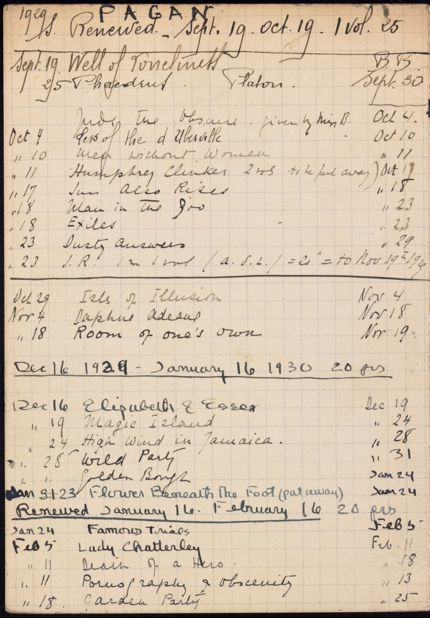 1929 PAGAN
Renewed - Sept. 19. Oct. 19. 1 vol. 25
Sept. 19 Well of Loneliness B.B.
25 Phaedrus Platon. Sept. 30
Jude the Obscure. given by Miss B. Oct 4.
Oct 4 Tess of the d'Uberville Oct 10
" 10 Men Without Women " 11
" 11 Humphrey Clinker 2 vols to be put away) Oct 17
" 17 Sun Also Rises " 18
" 18 Man in the Zoo " 23
" 18 Exiles - " 23
" 23 Dusty Answers " 29
" 23 S.R. 1 m 1 vol (a.d.l.) = 20 = to Nov 19th 1929
Oct 29 Isls of Illusion Nov 4
Nov 4 Daphne Adeane Nov 18
" 18 Room of one's own Nov 19.
Dec 16 1929 - January 16 1930 20 frs
Dec 16 Elizabeth & Essex Dec 19
" 19 Magic Island " 24
" 24 High Wind in Jamaica. " 28
" 28 Wild Party " 31
" Golden Bough Jan 24
Jan 3123 Flower Beneath the Foot (put away) Jan 24
Renewed January 16. February 16 20 frs
Jan 24 Famous Trials Feb 5
Feb 5 Lady Chatterley Feb. 11
" 11 Death of a Hero. " 18
" 11 Pornography & Obscenity " 13
" 18 Garden Party " 25